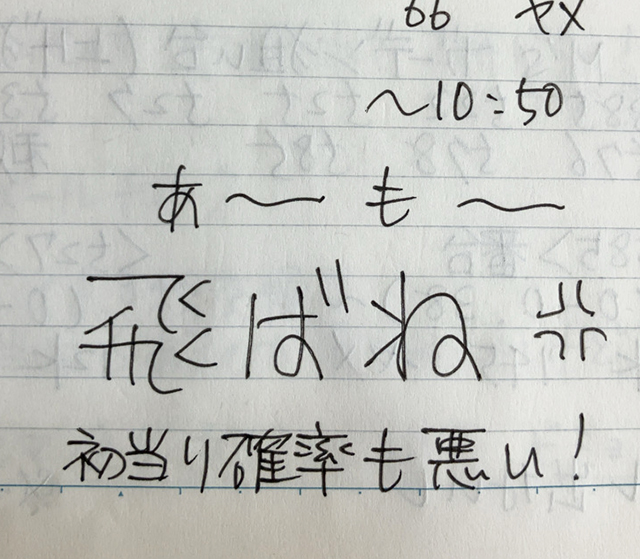 66 ヤメ
〜10:50
あ〜も〜
飛ばね💢
初当り確率も悪い!